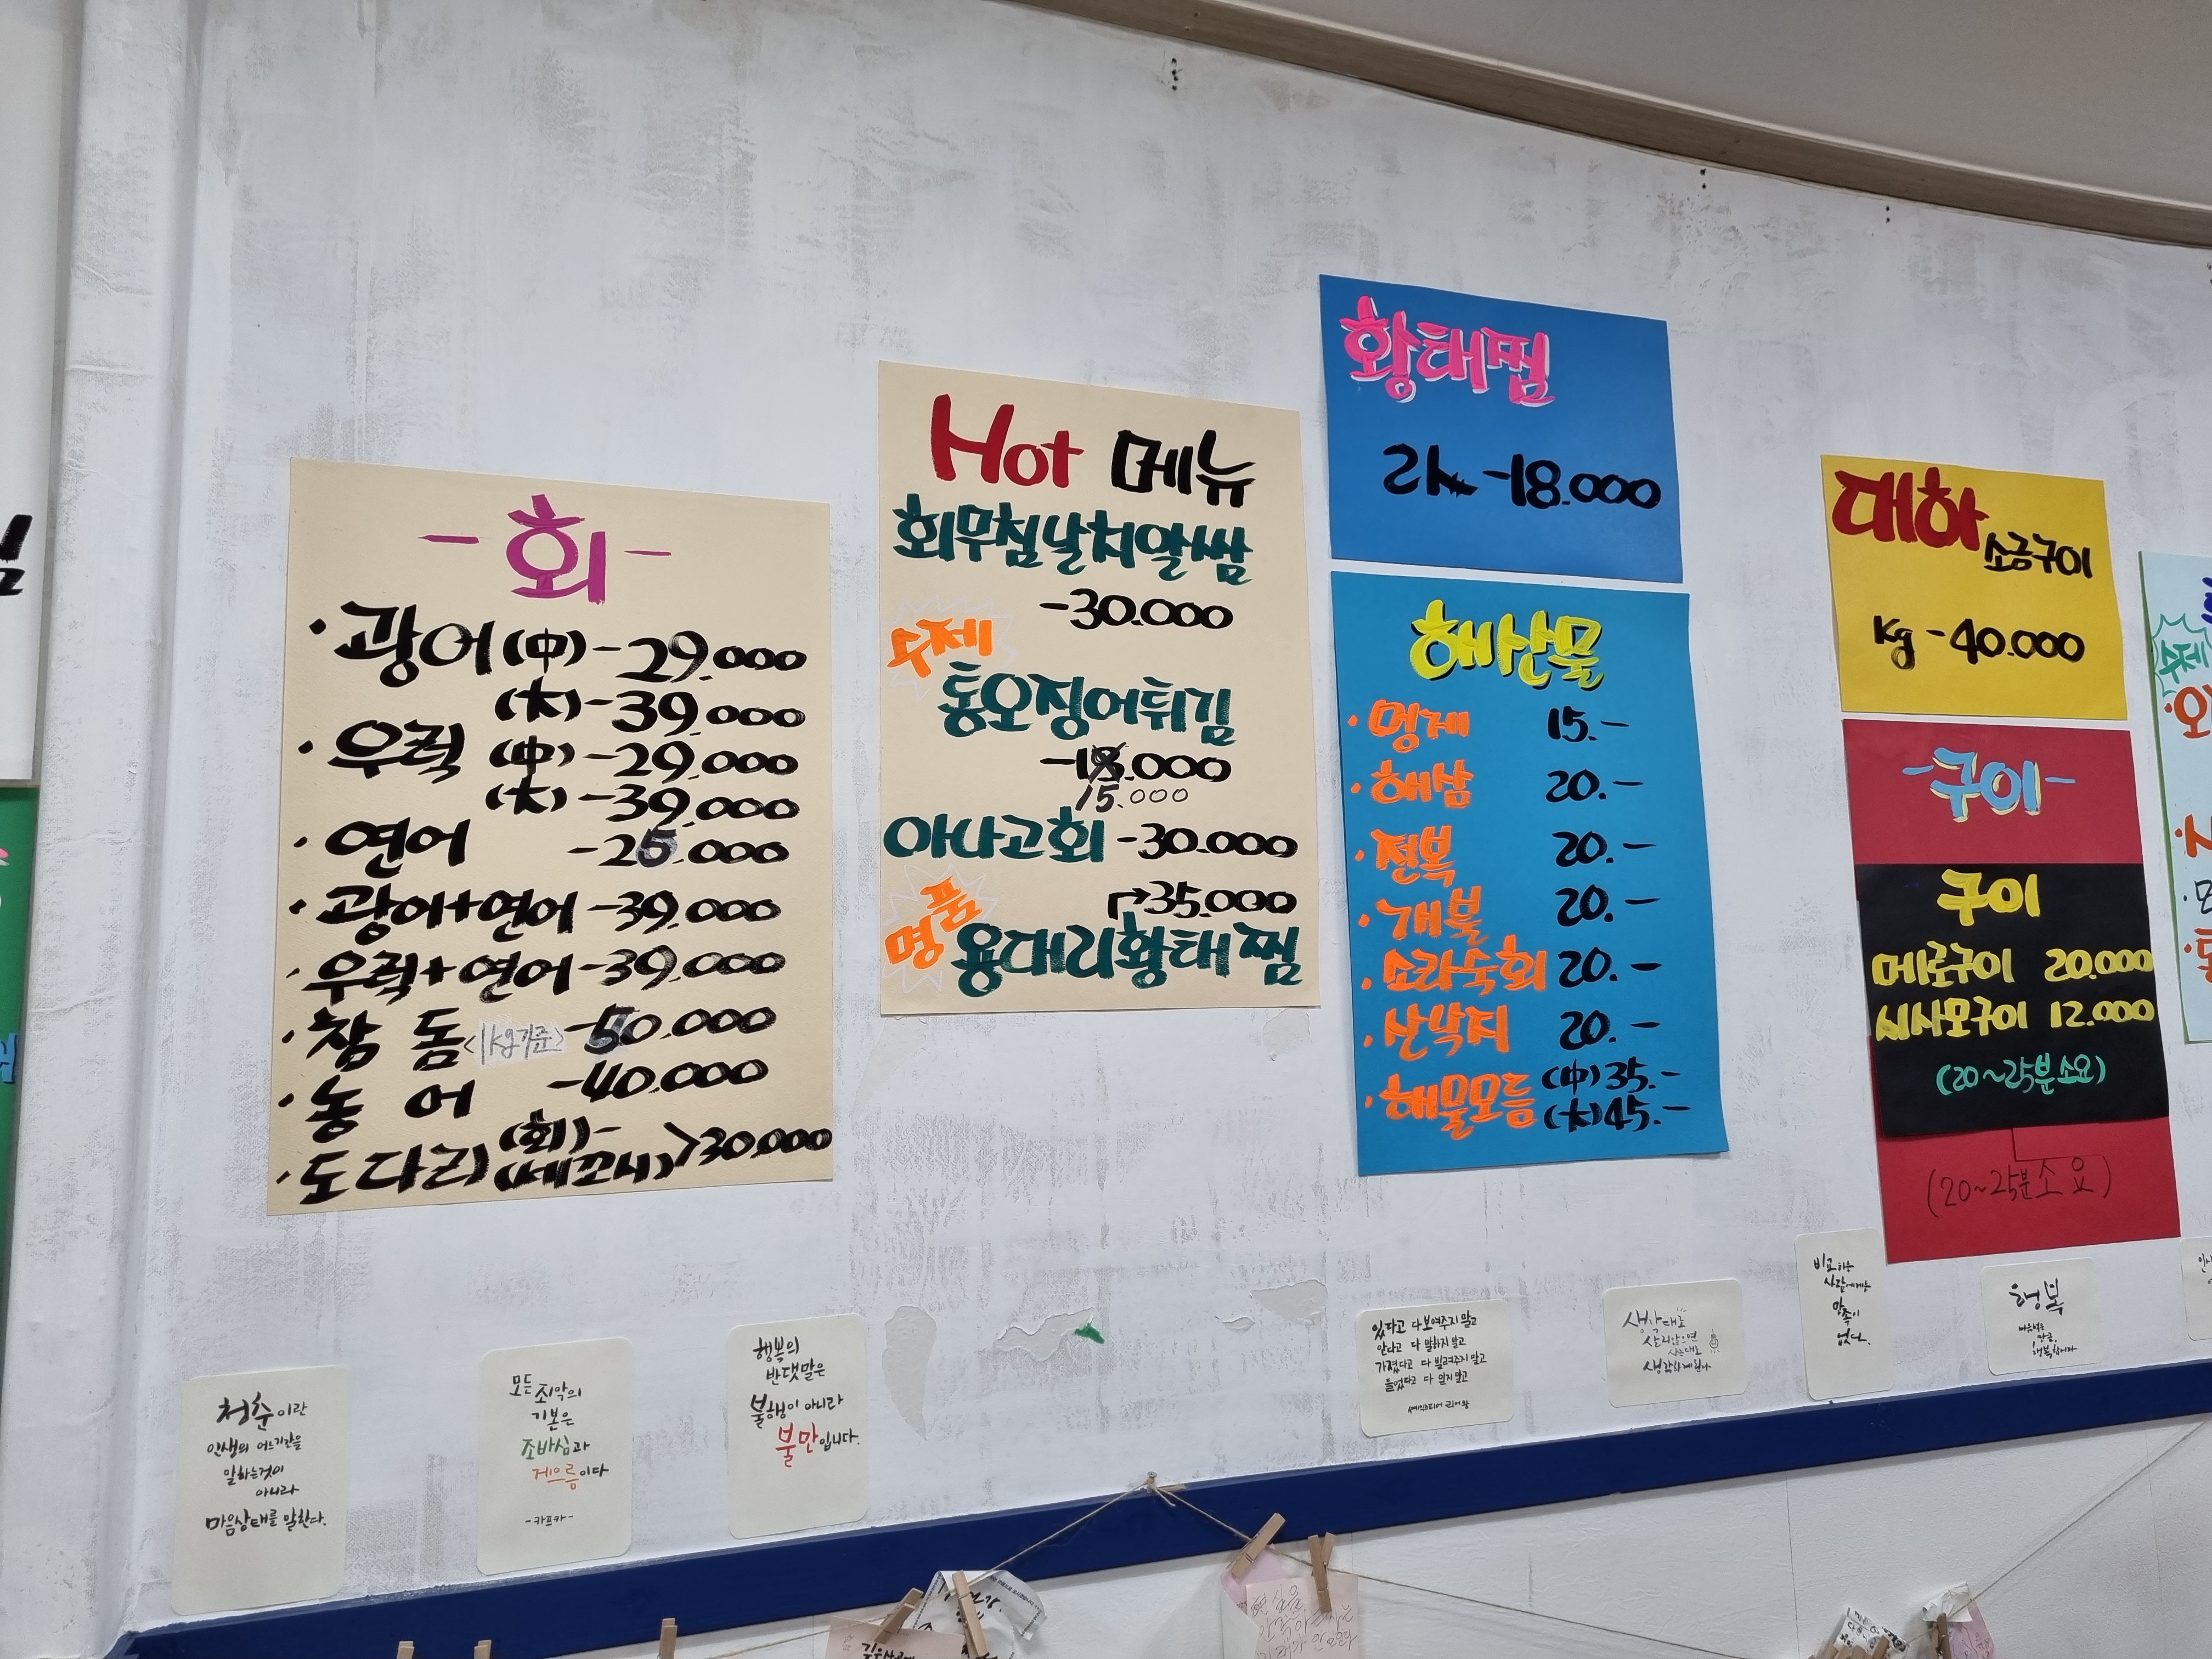 -회-
·광어(中)-29.000
(大)-39.000
·우럭 (中)-29.000
(大)-39.000
·연어 -25.000
·광어+연어-39.000
·우럭+연어-39.000
·참 돔<1kg기준>-50.000
·농 어 -40.000
·도다리(회)-
(세꼬시)>30.000
Hot 메뉴
회무침날치알쌈
-30.000
수제
통오징어튀김
-18.000
15.000
아나고회-30.000
↱35.000
명품
용대리황태찜
황태찜
2人-18.000
해산물
·멍게 15.-
·해삼 20.-
·전복 20.-
·개불 20.-
·소라숙회 20.-
·산낙지 20.-
·해물모듬(中)35.-
(大)45.-
대하 소금구이
kg-40.000
-구이-
구이
메로구이 20.000
시사모구이 12.000
(20~25분소요)
(20~25분소요)
청춘이란
인생의 어느기간을
말하는것이
아니라
마음상태를 말한다.
모든 죄악의
기본은
조바심과
게으름이다
-카프카-
행복의
반댓말은
불행이 아니라
불만입니다.
있다고 다보여주지말고
안다고 다 말하지말고
가졌다고 다 빌려주지말고
들었다고 다 믿지말고
생각대로
살지않으면
사는대로
생각하게된다
비교하는
사람에게는
만족이
없다.
행복